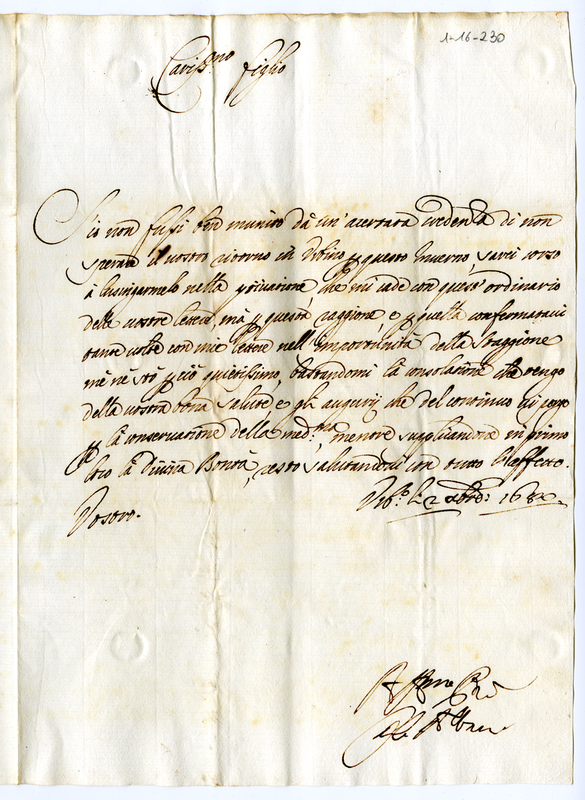 1-16-230
Cariss.mo figlio
S'io non fussi ben munito da un'accertata credenza di non
sperare il vostro ritorno in Urbino p questo Inverno, sarei corso
à lusingarmelo nella privatione, che mi cade con quest'ordinario
delle vostre lettere, mà p questa raggione, e p quella confermatavi
tante volte con mie lettere nell'importunità della Staggione
mè nè stò p ciò quietissimo, bastandomi la consolatione che tengo
della vostra bona salute e gli augurij che del continuo
p la conservatione della med.ma, mentre supplicandone in primo
loco la Divina Bontà, resto salutandovi con tutto l'affetto.
Vostro.
Urb.o li 2 xbre: 168
Aff.mo Pre